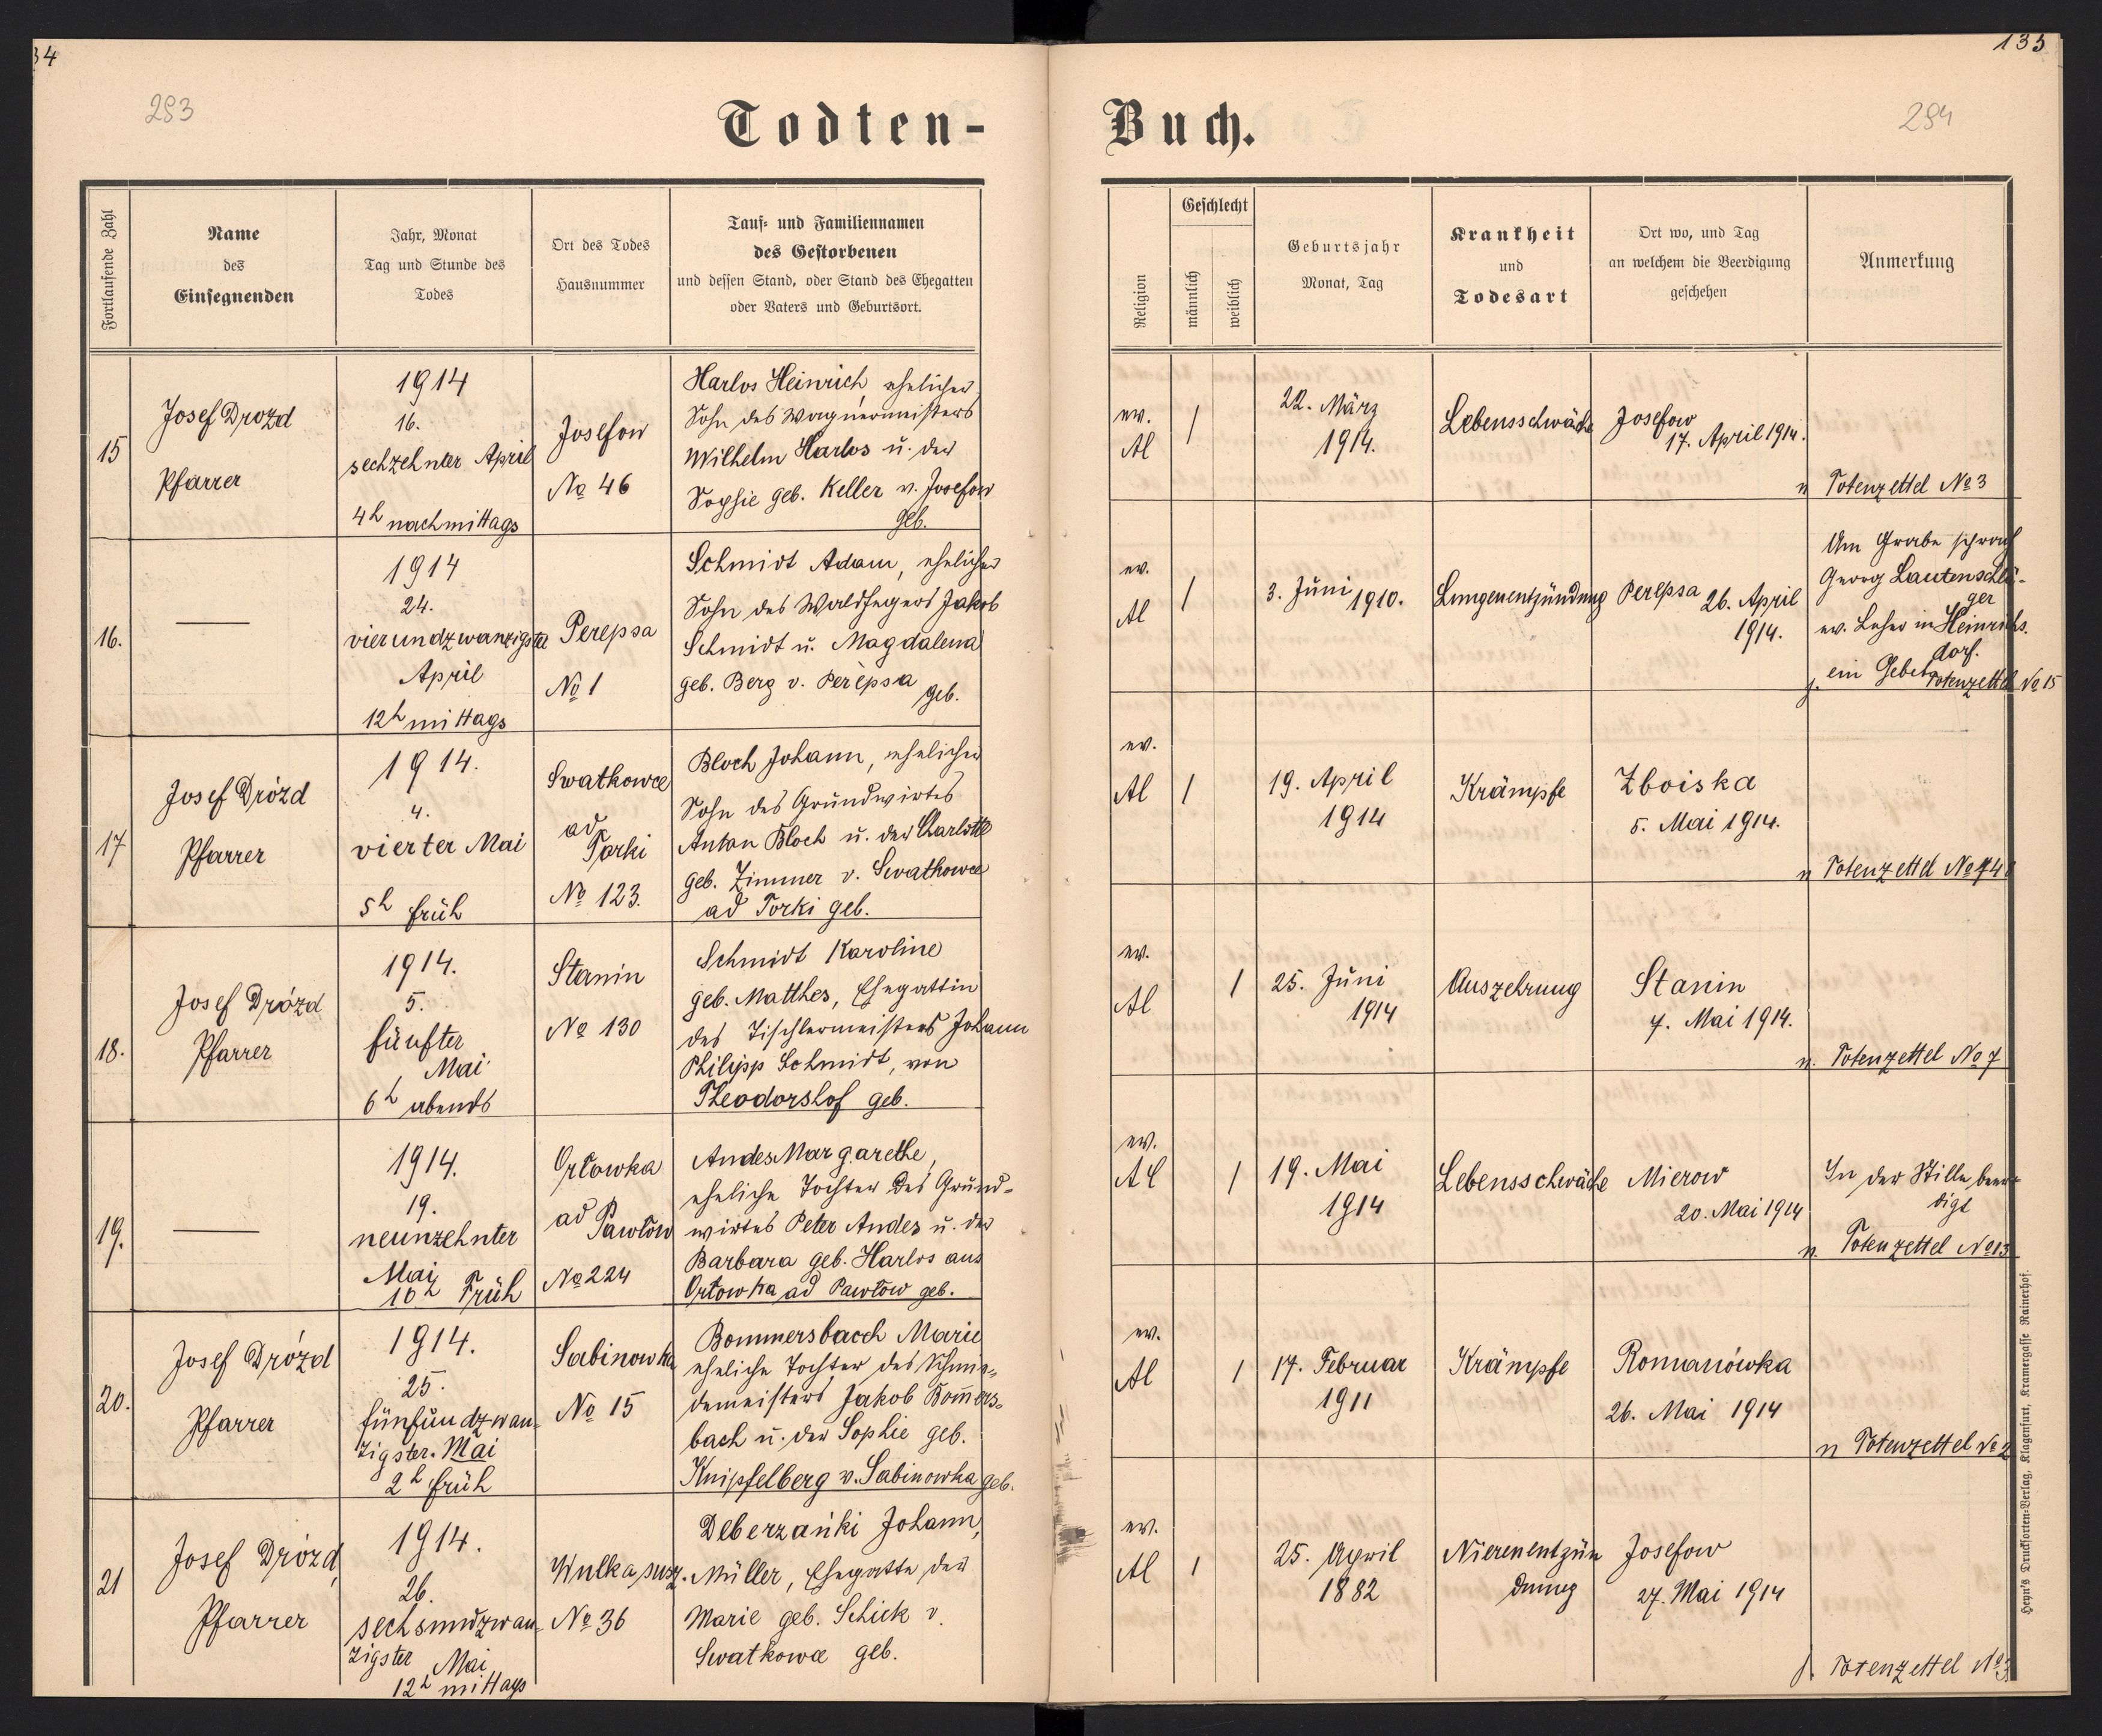 34
293
Todten-
Fortlaufende Zahl
Name
des
Einsegnenden
Jahr, Monat
Tag und Stunde des
Todes
Ort des Todes
Hausnummer
Tauf- und Familiennamen
des Gestorbenen
und dessen Stand, oder Stand des Ehegatten
oder Vaters und Geburtsort.
15
Josef Drozd
Pfarrer
1914
16.
sechzehnter April
4h nachmittags
Josefow
No 46
Harlos Heinrich, ehelicher
Sohn des Wagnermeisters
Wilhelm Harlos u. der
Sophie geb. Keller v. Josefow
geb.
16.
1914
24.
vierundzwanzigster
April
12h mittags
Perepsa
No 1
Schmidt Adam, ehelicher
Sohn des Waldhegers Jakob
Schmidt u. Magdalena
geb. Berg v. Perepsa
geb.
17
Josef Drózd
Pfarrer
1914.
4.
vierter Mai
5h früh
Swatkowce
ad
Torki
No 123.
Bloch Johann, ehelicher
Sohn des Grundwirtes
Anton Bloch u. der Charlotte
geb. Zimmer v. Swatkowce
ad Torki geb.
18.
Josef Drózd
Pfarrer
1914.
5.
fünfter
Mai
6h abends
Stanin
No 130
Schmidt Karoline
geb. Matthes, Ehegattin
des Tischlermeisters Johann
Philipp Schmidt, von
Theodorshof geb.
19.
1914.
19.
neunzehnter
Mai
10h Früh
Orłowka
ad
Pawłow
No 224
Andes Margarethe,
eheliche Tochter des Grund-
wirtes Peter Andes u. der
Barbara geb. Harlos aus
Orłowka ad Pawłow geb.
20.
Josef Drózd
Pfarrer
1914.
25.
fünfundzwan-
zigster. Mai
2h früh
Sabinowka
No 15
Bommersbach Marie
eheliche Tochter des Schmie-
demeisters Jakob Bom̄ers-
bach u. der Sophie geb.
Knipfelberg v. Sabinowka geb.
21
Josef Drózd,
Pfarrer
1914.
26.
sechsundzwan-
zigster Mai
12h mittags
Wulka susz.
No 36
Deberzańki Johann,
Müller, Ehegatte der
Marie geb. Schick v.
Swatkowce geb.
135
294
Buch.
Religion
Geschlecht
männlich
weiblich
Geburtsjahr
Monat, Tag
Krankheit
und
Todesart
Ort wo, und Tag
an welchem die Beerdigung
geschehen
Anmerkung
ev.
Al
1
22. März
1914.
Lebensschwäche
Josefow
17. April 1914.
n Totenzettel No 3
ev.
Al
1
3. Juni 1910.
Lungenentzündung
Perepsa 26. April
1914.
Am Grabe sprach
Georg Lautenschlä-
ger
ev. Lehrer in Heinrichs.
dorf.
ein Gebet
Totenzettel No 15
ev.
Al
1
19. April
1914
Krämpfe
Zboiska
5. Mai 1914.
n Totenzettel
ev.
Al
1
25. Juni
1914
Auszehrung
Stanin
7. Mai 1914.
n. Totenzettel No 7
ev.
Al
1
19. Mai
1914
Lebensschwäche
Mierow
20. Mai 1914
In der Stille beer-
digt
n. Totenzettel No 13
ev.
Al
1
17. Februar
1911
Krämpfe
Romanówka
26. Mai 1914
n Totenzettel No 2
ev.
Al
1
25. April
1882
Nierenentzün
dung
Josefow
27. Mai 1914
Totenzettel No 3
Heyn's Drucksorten-Verlag, Klagenfurt, Kramergasse Rainerhof.